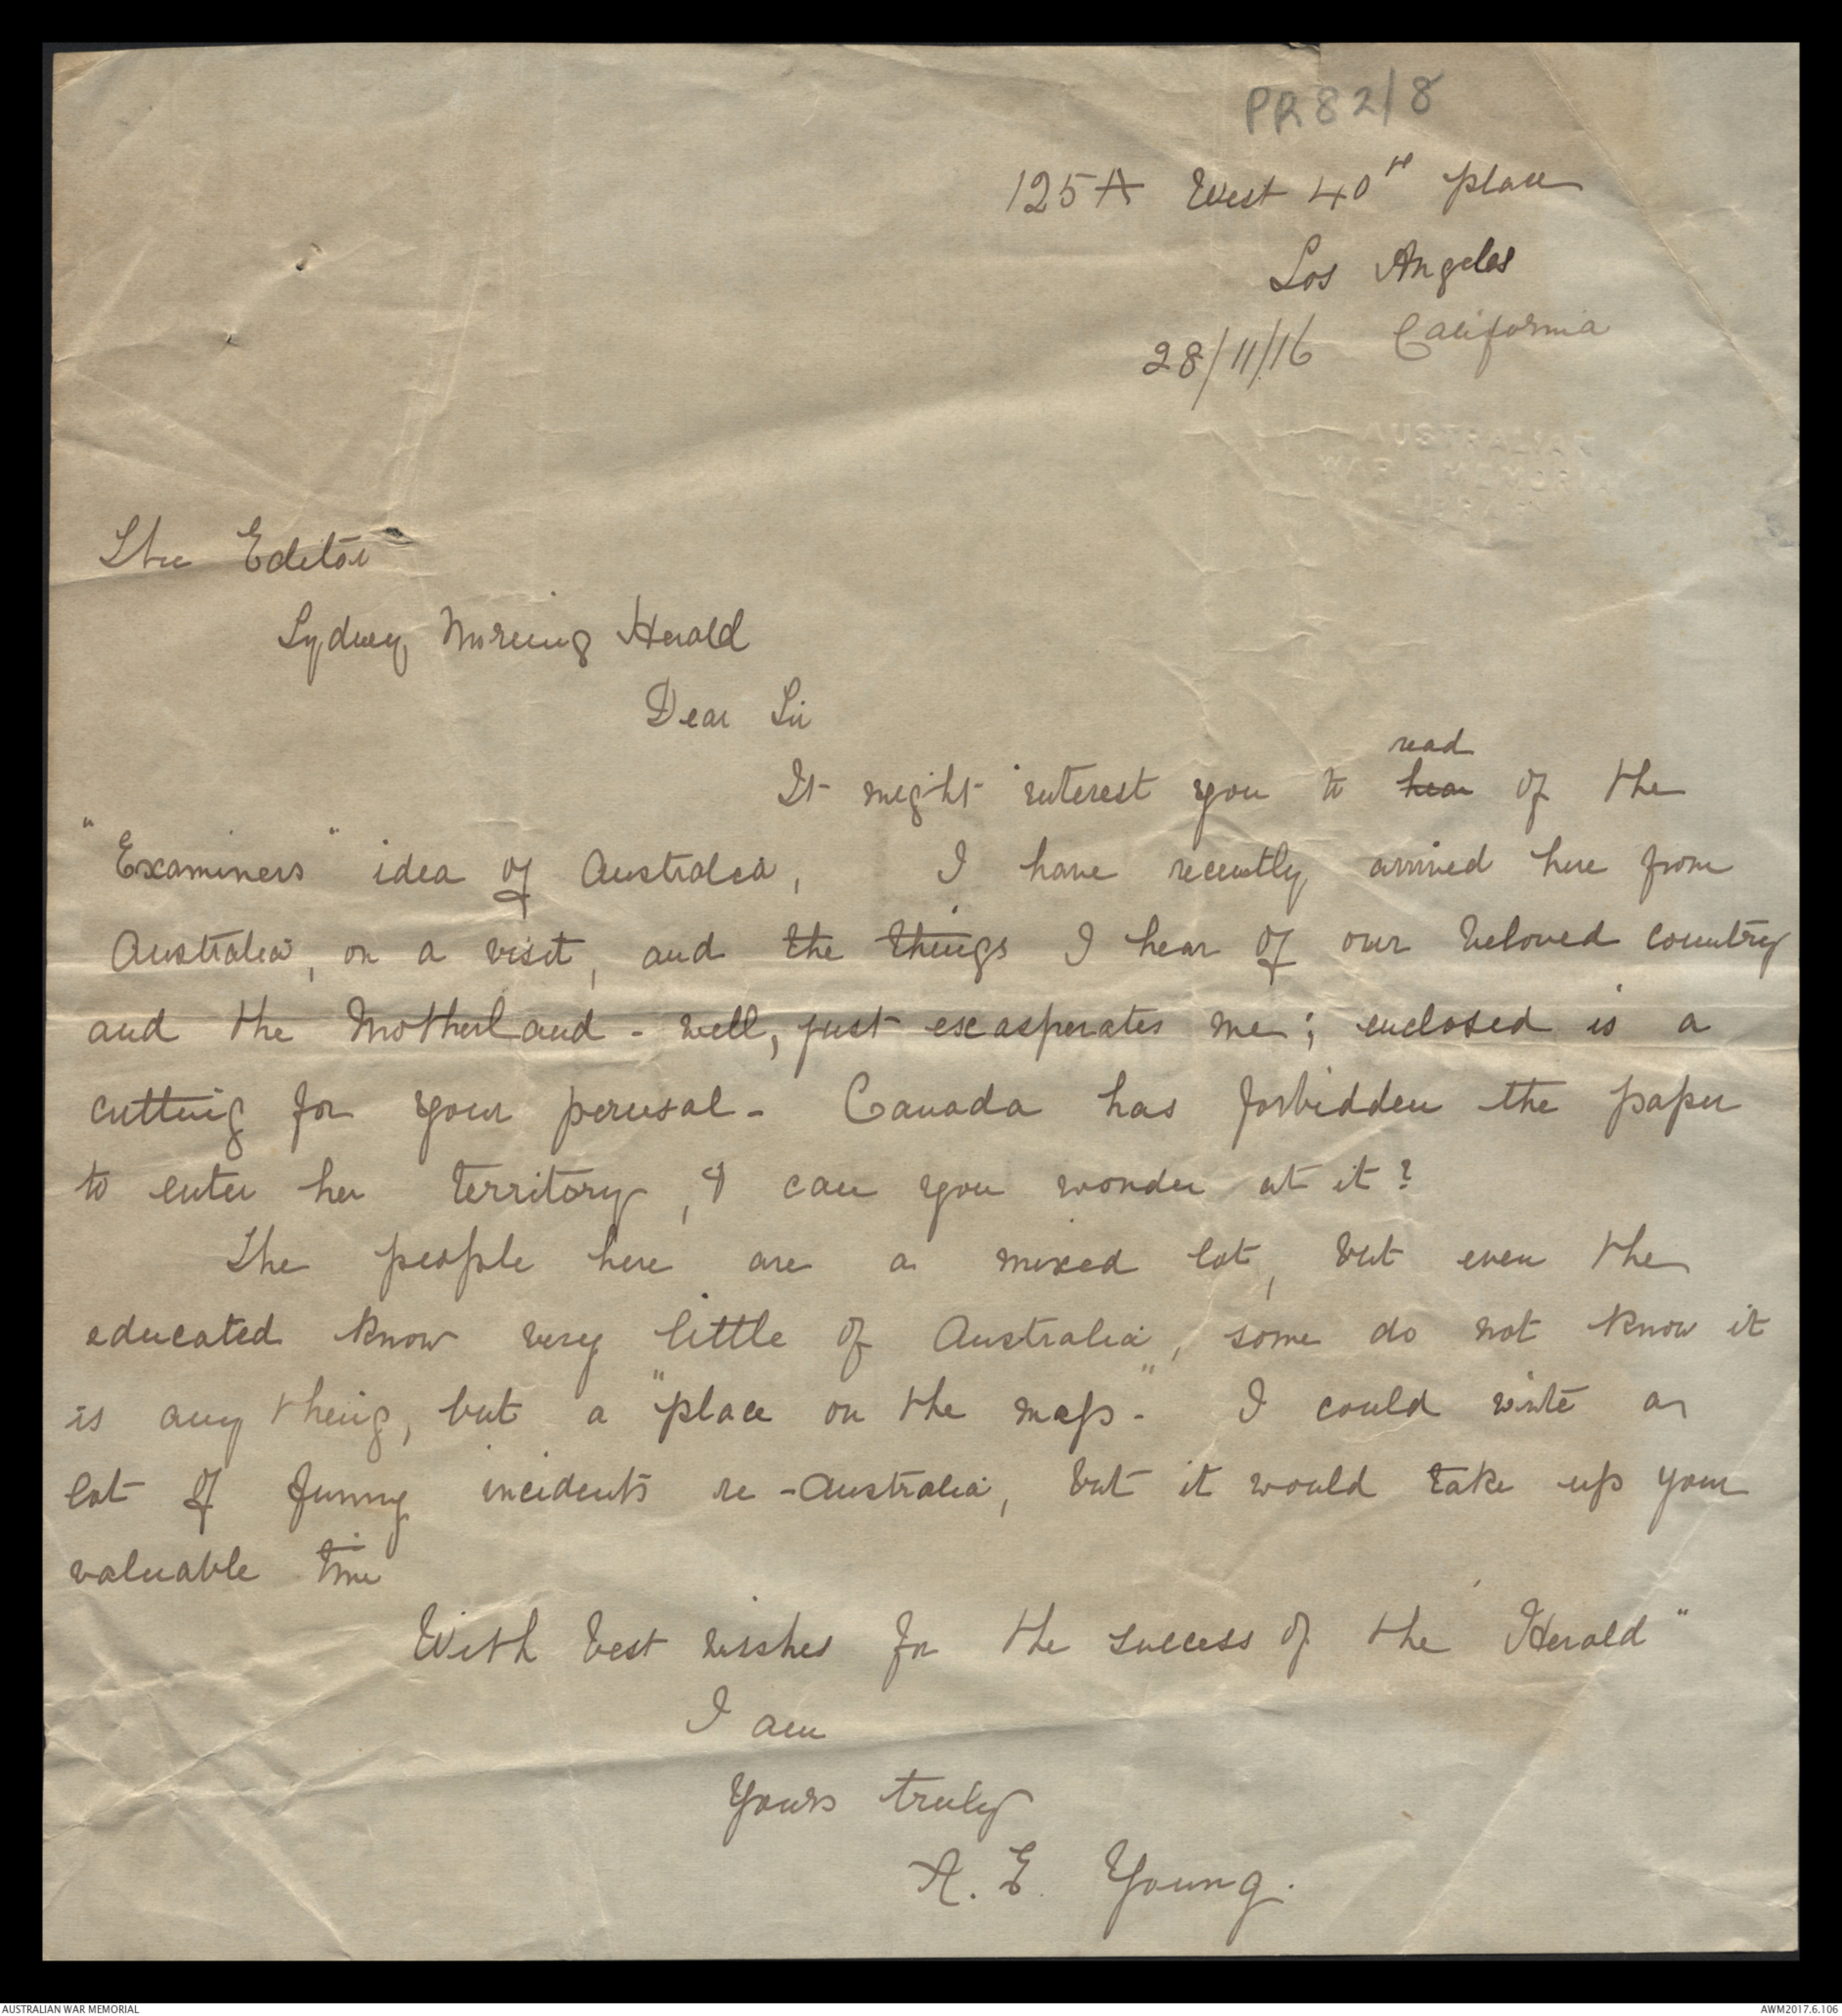 PR82/8
125A West 40th place
Los Angeles
28/11/16 California
AUSTRALIAN
WAR MEMORIAL
The Editor
Sydney Morning Herald
Dear Sir
It might interest you to hear read of the
"Examiners" idea of Australia, I have recently arrived here from
Australia, on a visit, and the things I hear of our beloved country
and the Motherland - well, just exasperates me; enclosed is a
cutting for your perusal - Canada has forbidden the paper
to enter her territory, & can you wonder at it?
The people here are a mixed lot, but even the
educated know very little of Australia, some do not know it
is any thing, but a "place on the map"- I could write a
lot of funny incidents re - Australia, but it would take up your
valuable time
With best wishes for the success of the "Herald"
I am
Yours truly
A. E. Young.
AUSTRALIAN WAR MEMORIAL
AWM2017.6.106